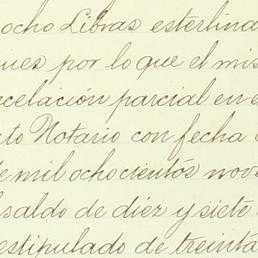 ocho Libras esterlina
ues por lo que el mis
celación parcial en e
to Notario con fecha
de mil ochocientos nove
saldo de diez y siete
estipulado de treinta